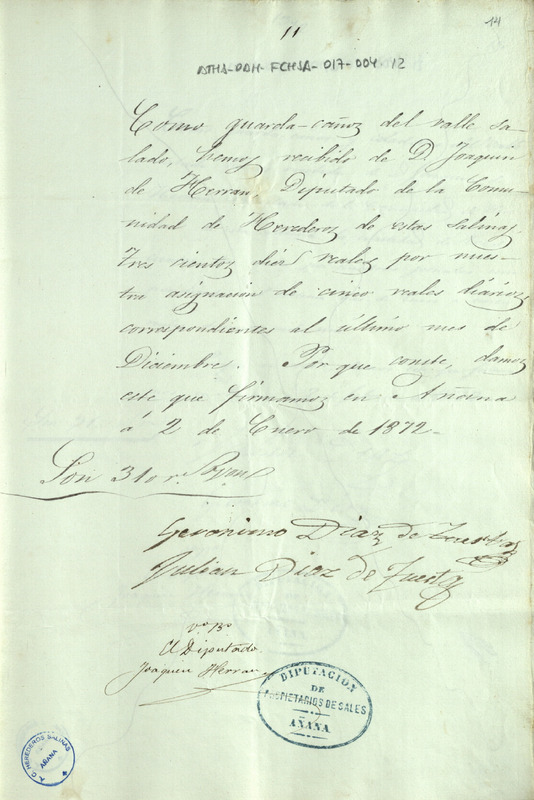 14
11
ATHA-DAH-FCHSA-017-004-12
Como guarda-cañoz del valle sa-
lado, hemoz recibido de D. Joaquin
de Herran, Diputado de la Comu-
nidad de Herederoz de estas salinaz,
tres cientoz diez realez por nues-
tra asignacion de cinco reales diarioz
correspondientes al último mes de
Diciembre. Por que conste, damoz
este que firmamoz en Añana
á 2 de Enero de 1872-
Son 310 r.
Geronimo Diaz de Tuesta
Julian Diaz de Tuesta
Vº Bº
El Diputado
Joaquin Herran
DIPUTACION
DE
PROPIETARIOS DE SALES
AÑANA
A. C. HEREDEROS SALINAS
AÑANA